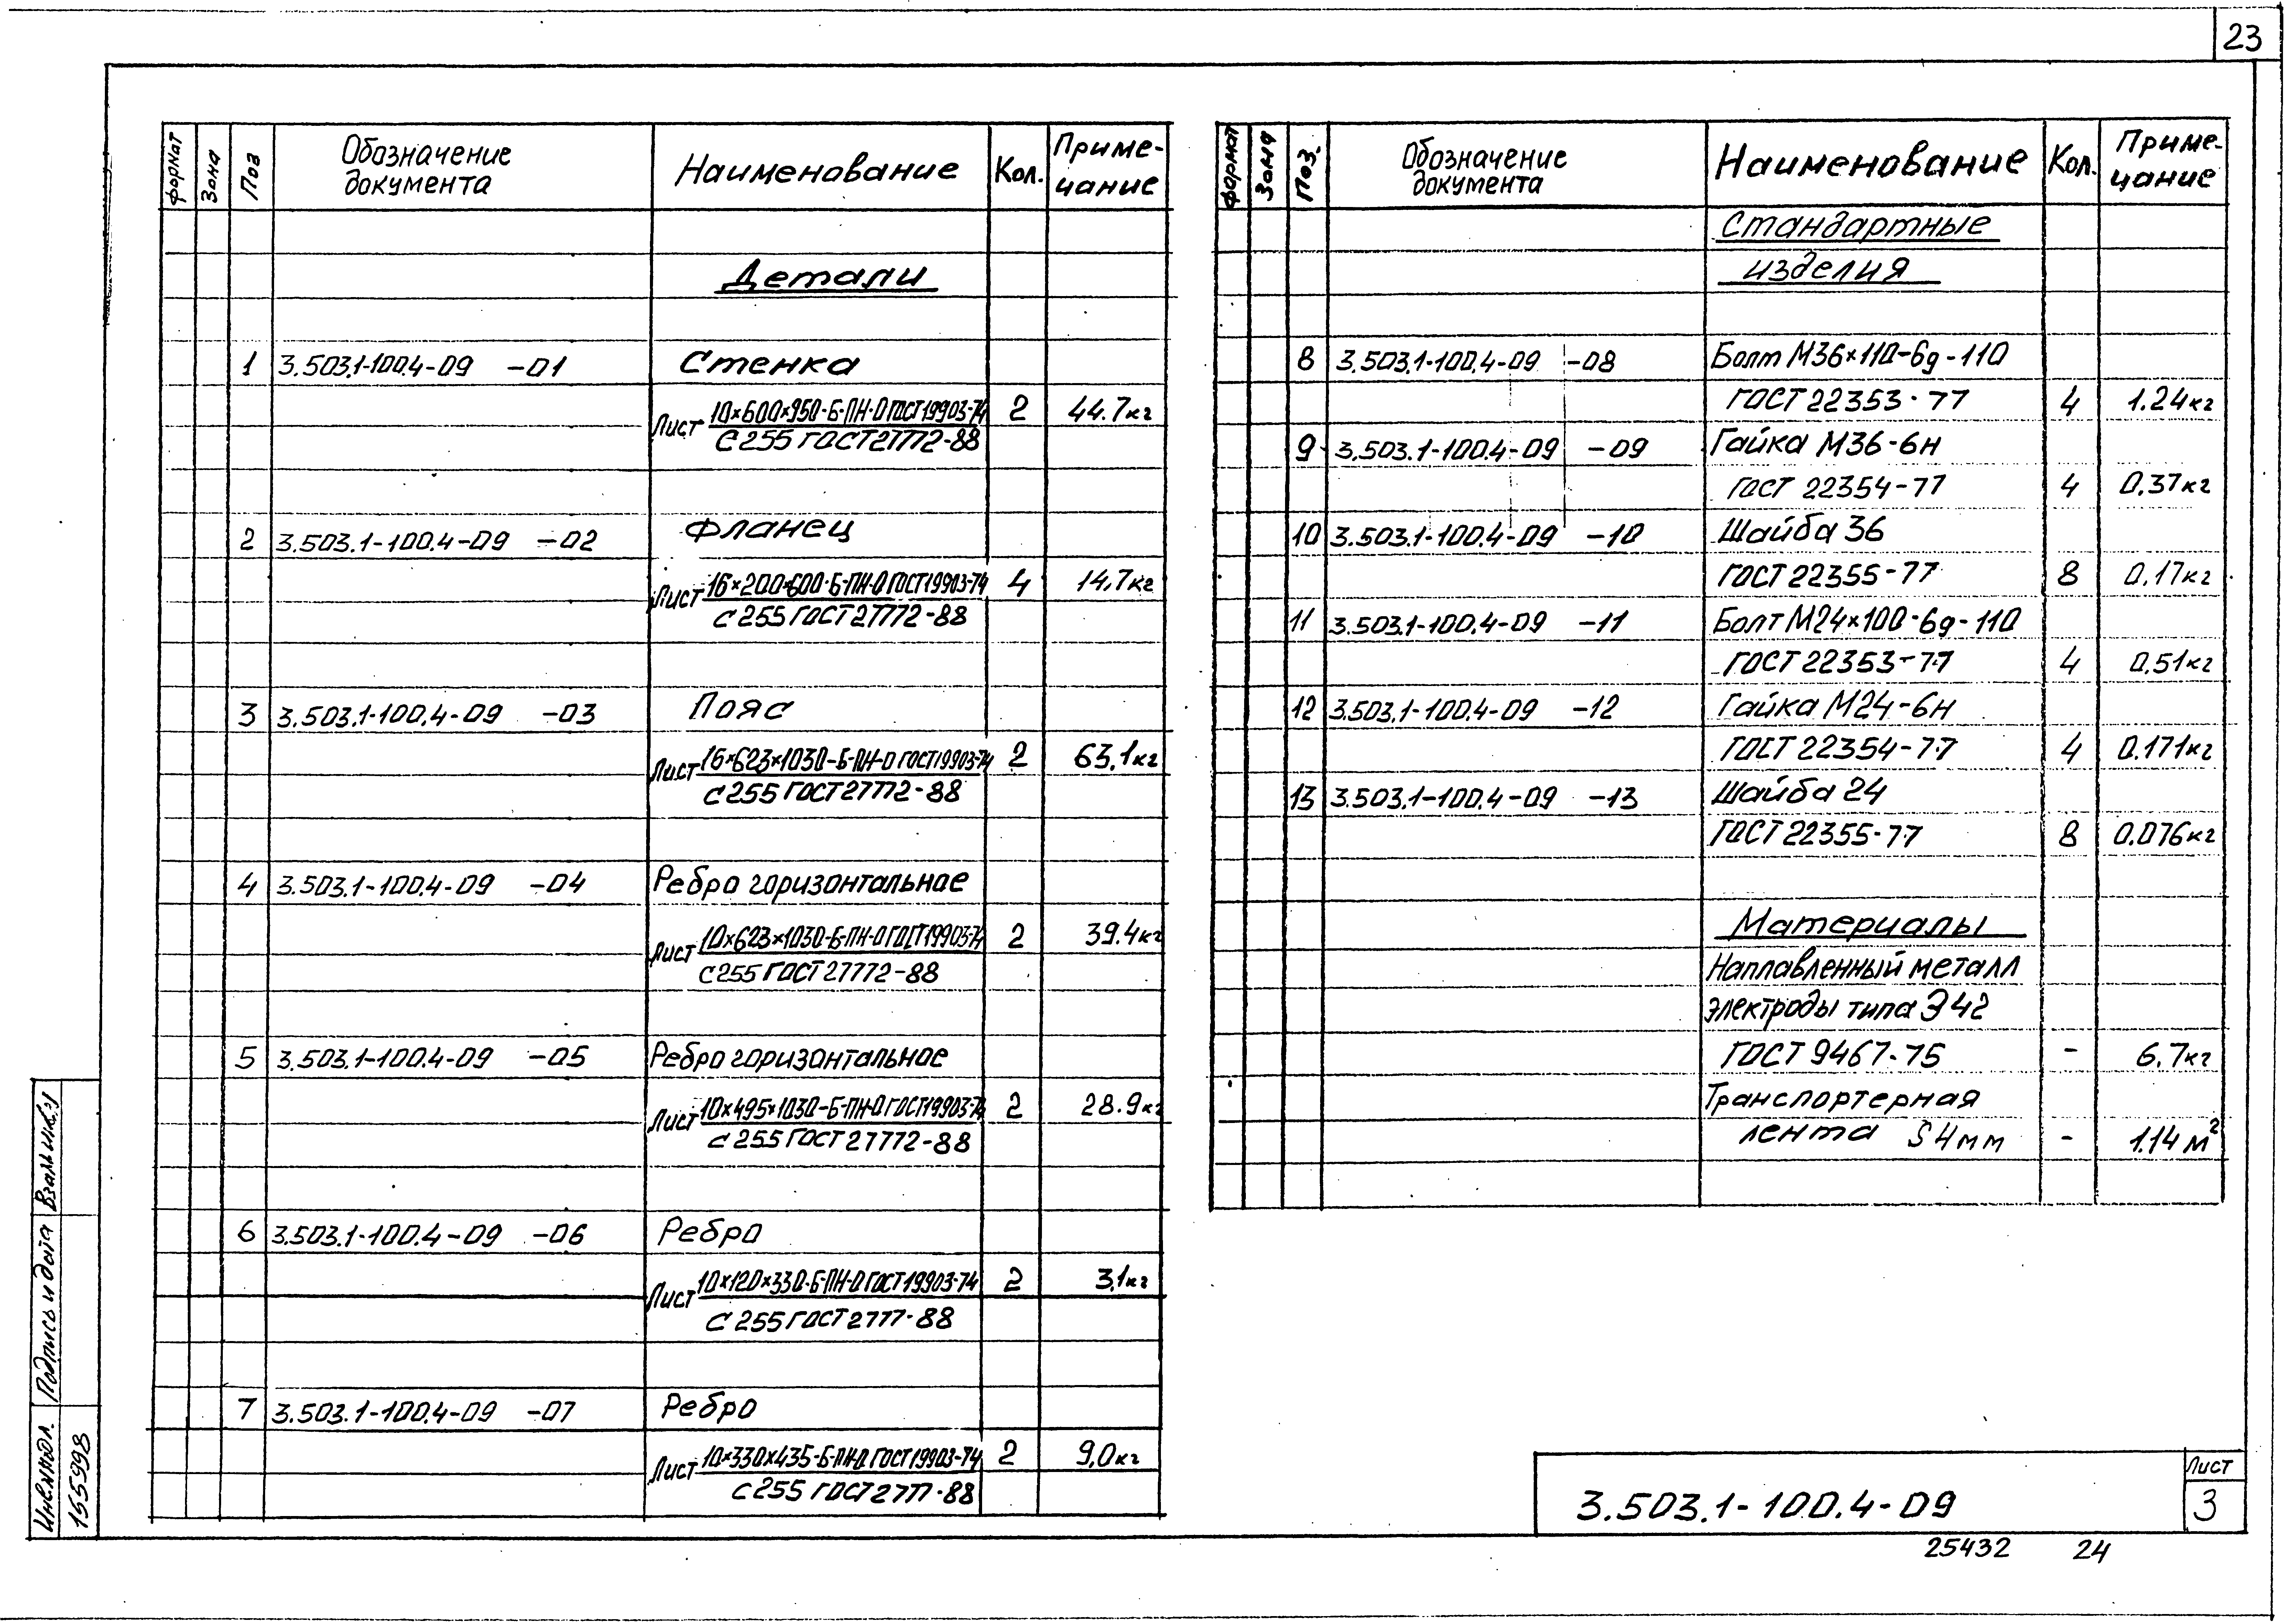 23
Формат Зона Поз Обозначение документа Наименование Кол. Примечание
Детали
1 3.503.1-100.4-09 -01 Стенка
Лист 10×600×950-Б-ПН-О ГОСТ 19903-74 2 44.7кг
С255 ГОСТ 27772-88
2 3.503.1-100.4-09 -02 Фланец
Лист 16×200×600-Б-ПН-О ГОСТ 19903-74 4 14,7кг
С255 ГОСТ 27772-88
3 3.503.1-100.4-09 -03 Пояс
Лист 16×623×1030-Б-ПН-О ГОСТ 19903-74 2 63,1кг
С255 ГОСТ 27772-88
4 3.503.1-100.4-09 -04 Ребро горизонтальное
Лист 10×623×1030-Б-ПН-О ГОСТ 19903-74 2 39.4кг
С255 ГОСТ 27772-88
5 3.503.1-100.4-09 -05 Ребро горизонтальное
Лист 10×495×1030-Б-ПН-О ГОСТ 19903-74 2 28.9кг
С255 ГОСТ 27772-88
6 3.503.1-100.4-09 -06 Ребро
Лист 10×120×330-Б-ПН-О ГОСТ 19903-74 2 3,1кг
С255 ГОСТ 2777-88
7 3.503.1-100.4-09 -07 Ребро
Лист 10×330×435-Б-ПН-О ГОСТ 19903-74 2 9,0кг
С255 ГОСТ 2777-88
Формат Зона Поз. Обозначение документа Наименование Кол. Примечание
Стандартные
изделия
8 3.503.1-100.4-09 -08 Болт М36×110-6g-110
ГОСТ 22353-77 4 1.24кг
9 3.503.1-100.4-09 -09 Гайка М36-6н
ГОСТ 22354-77 4 0.37кг
10 3.503.1-100.4-09 -10 Шайба 36
ГОСТ 22355-77 8 0.17кг
11 3.503.1-100.4-09 -11 Болт М24×100-6g-110
ГОСТ 22353-77 4 0,51кг
12 3.503.1-100.4-09 -12 Гайка М24-6н
ГОСТ 22354-77 4 0.171кг
13 3.503.1-100.4-09 -13 Шайба 24
ГОСТ 22355-77 8 0.076кг
Материалы
Наплавленный металл
электроды типа Э42
ГОСТ 9467-75 - 6.7кг
Транспортерная
лента S 4мм - 1.14 м²
Инв.№подл. Подпись и дата Взам.инв.№
155998
3.503.1-100.4-09
Лист
3
25432 24